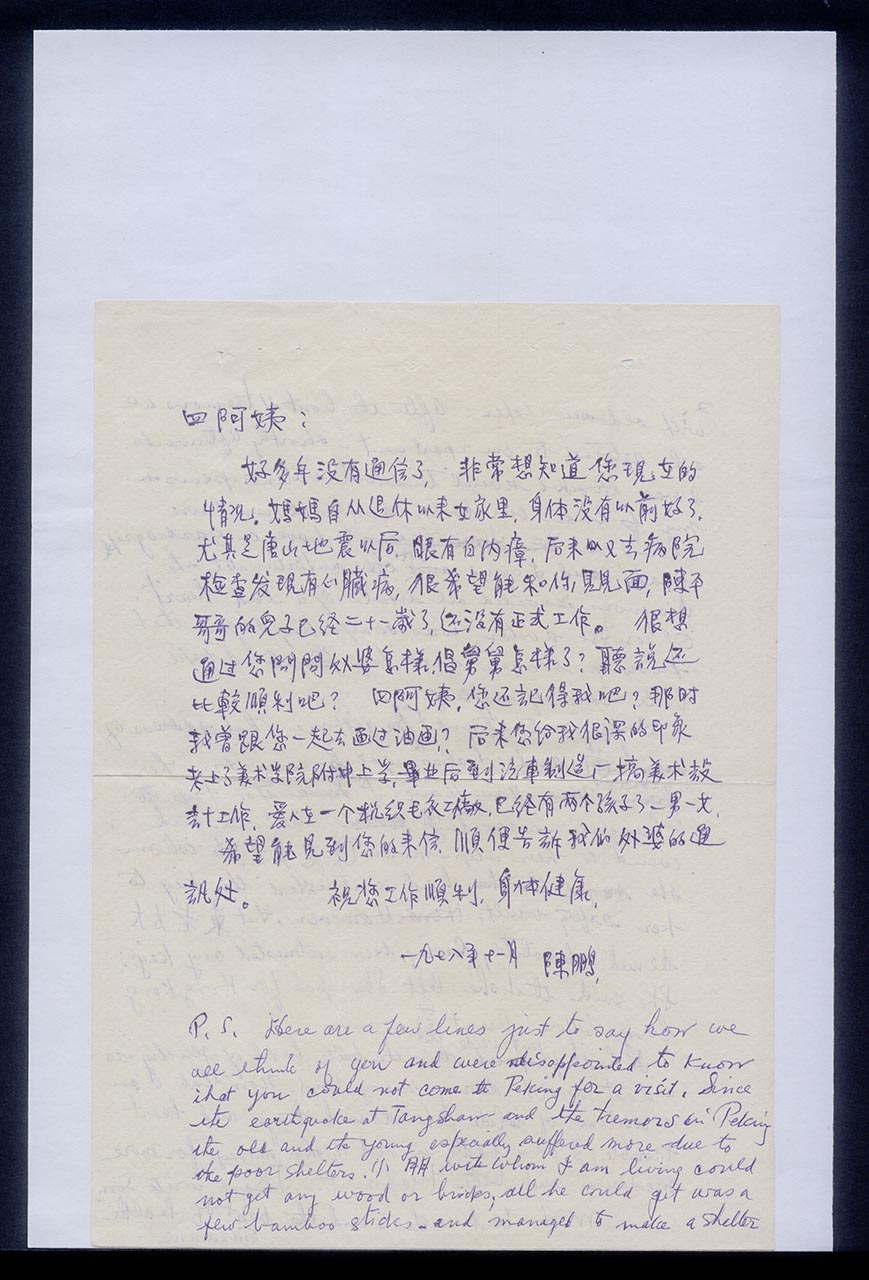 四阿姨：
好多年没有通信了，非常想知道您现在的
情况。媽媽自从退休以来在家里，身体没有以前好了，
尤其是唐山地震以后，眼有白内瘴，后来又去病院
检查发现有心臓病，很希望能和你見見面，陳平
哥哥的兒子已经二十一歲了，还没有正式工作。 很想
通过您問問外婆怎樣，倡舅舅怎様了？聽説还
比較順利吧？ 四阿姨，您还記得我吧？那时
我曾跟您一起去画过油画？后来您给我很深的印象
来上了美术学院附中上学，畢业后到汽車制造厂搞美术設
計工作，爱人在一个织毛衣工廠，已经有两个孩子了一男一女，
希望能見到您的来信，順便告訴我们外婆的通
訊处。 祝您工作順利，身体健康，
一九七八年十一月 陳鵬，
P.S. Here are a few lines just to say how we
all think of you and were disappointed to know
that you could not come to Peking for a visit. Since
the earthquake at Tangshan and the tremors in Peking
the old and the young especially suffered more due to
the poor shelters. 小朋 with whom I am living could
not get any wood or bricks, all he could get was a
few bamboo sticks and managed to make a shelter